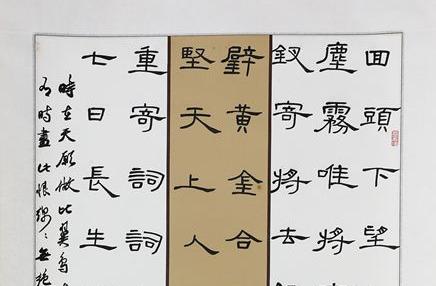 囬頭下望
塵霧唯將
釵寄將去
擘黃金合
堅天上人
重寄詞詞
七日長生
時在天願做比翼鳥
有時盡此恨綿〻無絕